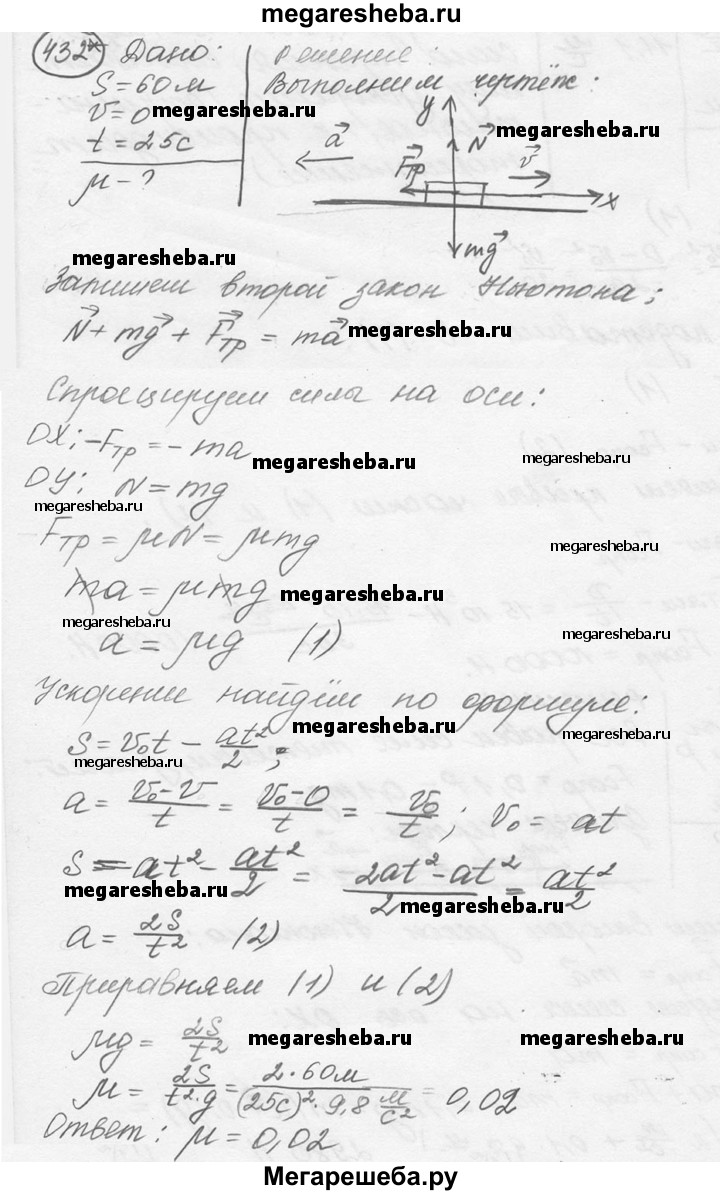 megaresheba.ru
432* Дано: Решение:
S = 60 м Выполним чертёж:
V = 0 megaresheba.ru
t = 25 с
μ - ?
y
N⃗ megaresheba.ru
a⃗
F⃗тр
v⃗
x
mg⃗
megaresheba.ru megaresheba.ru
Запишем второй закон Ньютона;
N⃗ + mg⃗ + F⃗тр = ma⃗ megaresheba.ru
Спроецируем силы на оси:
OX; -Fтр = - ma
megaresheba.ru
OY; N = mg
megaresheba.ru
Fтр = μN = μmg
megaresheba.ru
ma = μmg megaresheba.ru
megaresheba.ru
a = μg (1) megaresheba.ru
Ускорение найдём по формуле:
megaresheba.ru
S = v₀t - at²/2; megaresheba.ru
megaresheba.ru
a = (v₀ - v)/t = (v₀ - 0)/t = v₀/t; v₀ = at
S = at² - at²/2 = (2at² - at²)/2 = at²/2
megaresheba.ru megaresheba.ru
a = 2S/t² (2)
Приравняем (1) и (2)
μg = 2S/t² megaresheba.ru megaresheba.ru
μ = 2S/(t²·g) = 2·60м/((25с)²·9,8 м/с²) = 0,02
Ответ: μ = 0,02
megaresheba.ru
Мегарешеба.ру